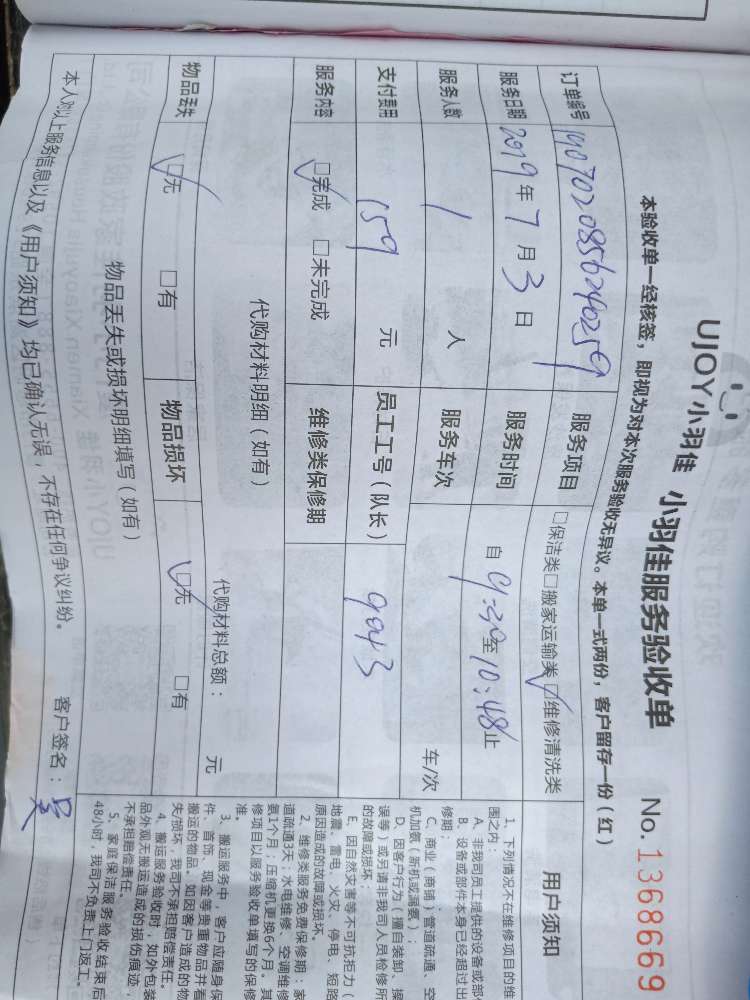 UJOY小羽佳 小羽佳服务验收单 No.1368669
本验收单一经核签，即视为对本次服务验收无异议。本单一式两份，客户留存一份（红）
订单编号 服务项目 □保洁类□搬家运输类☑维修清洗类
服务日期 2019年7月3日 服务时间 自9:30至10:48止
服务人数 1 人 服务车次 车/次
支付费用 159 元 员工工号（队长） 9043
服务内容 ☑完成 □未完成 维修类保修期
代购材料明细（如有） 代购材料总额： 元
物品丢失 ☑无 □有 物品损坏 ☑无 □有
物品丢失或损坏明细填写（如有）
本人对以上服务信息以及《用户须知》均已确认无误，不存在任何争议纠纷。 客户签名：
用户须知
1、下列情况不在维修项目的维
围之内：
A、非我司员工提供的设备或部
B、设备或部件本身已经超过出
修期；
C、商业（商铺）管道疏通、空
机加氨（新机或漏氨）；
D、因客户行为（擅自装卸、操
误等）或另请非我司人员检修所
的故障或损坏；
E、因自然灾害等不可抗拒力（
地震、雷电、火灾、停电、短路
原因造成的故障或损坏。
2、维修类服务免费保修期：家
道疏通3天；水电维修、空调维修
氨1个月；压缩机更换6个月。其
修项目以服务验收单填写的保修
准
3、搬运服务中，客户应随身保
件、首饰、现金等贵重物品并看
搬运的物品。如因客户造成的物
失/损坏，我司不承担赔偿责任。
4、搬运服务验收时，如外包装
品外观无搬运造成的损伤痕迹，
不承担赔偿责任。
5、家庭保洁服务验收结束后
48小时，我司不负责上门返工。